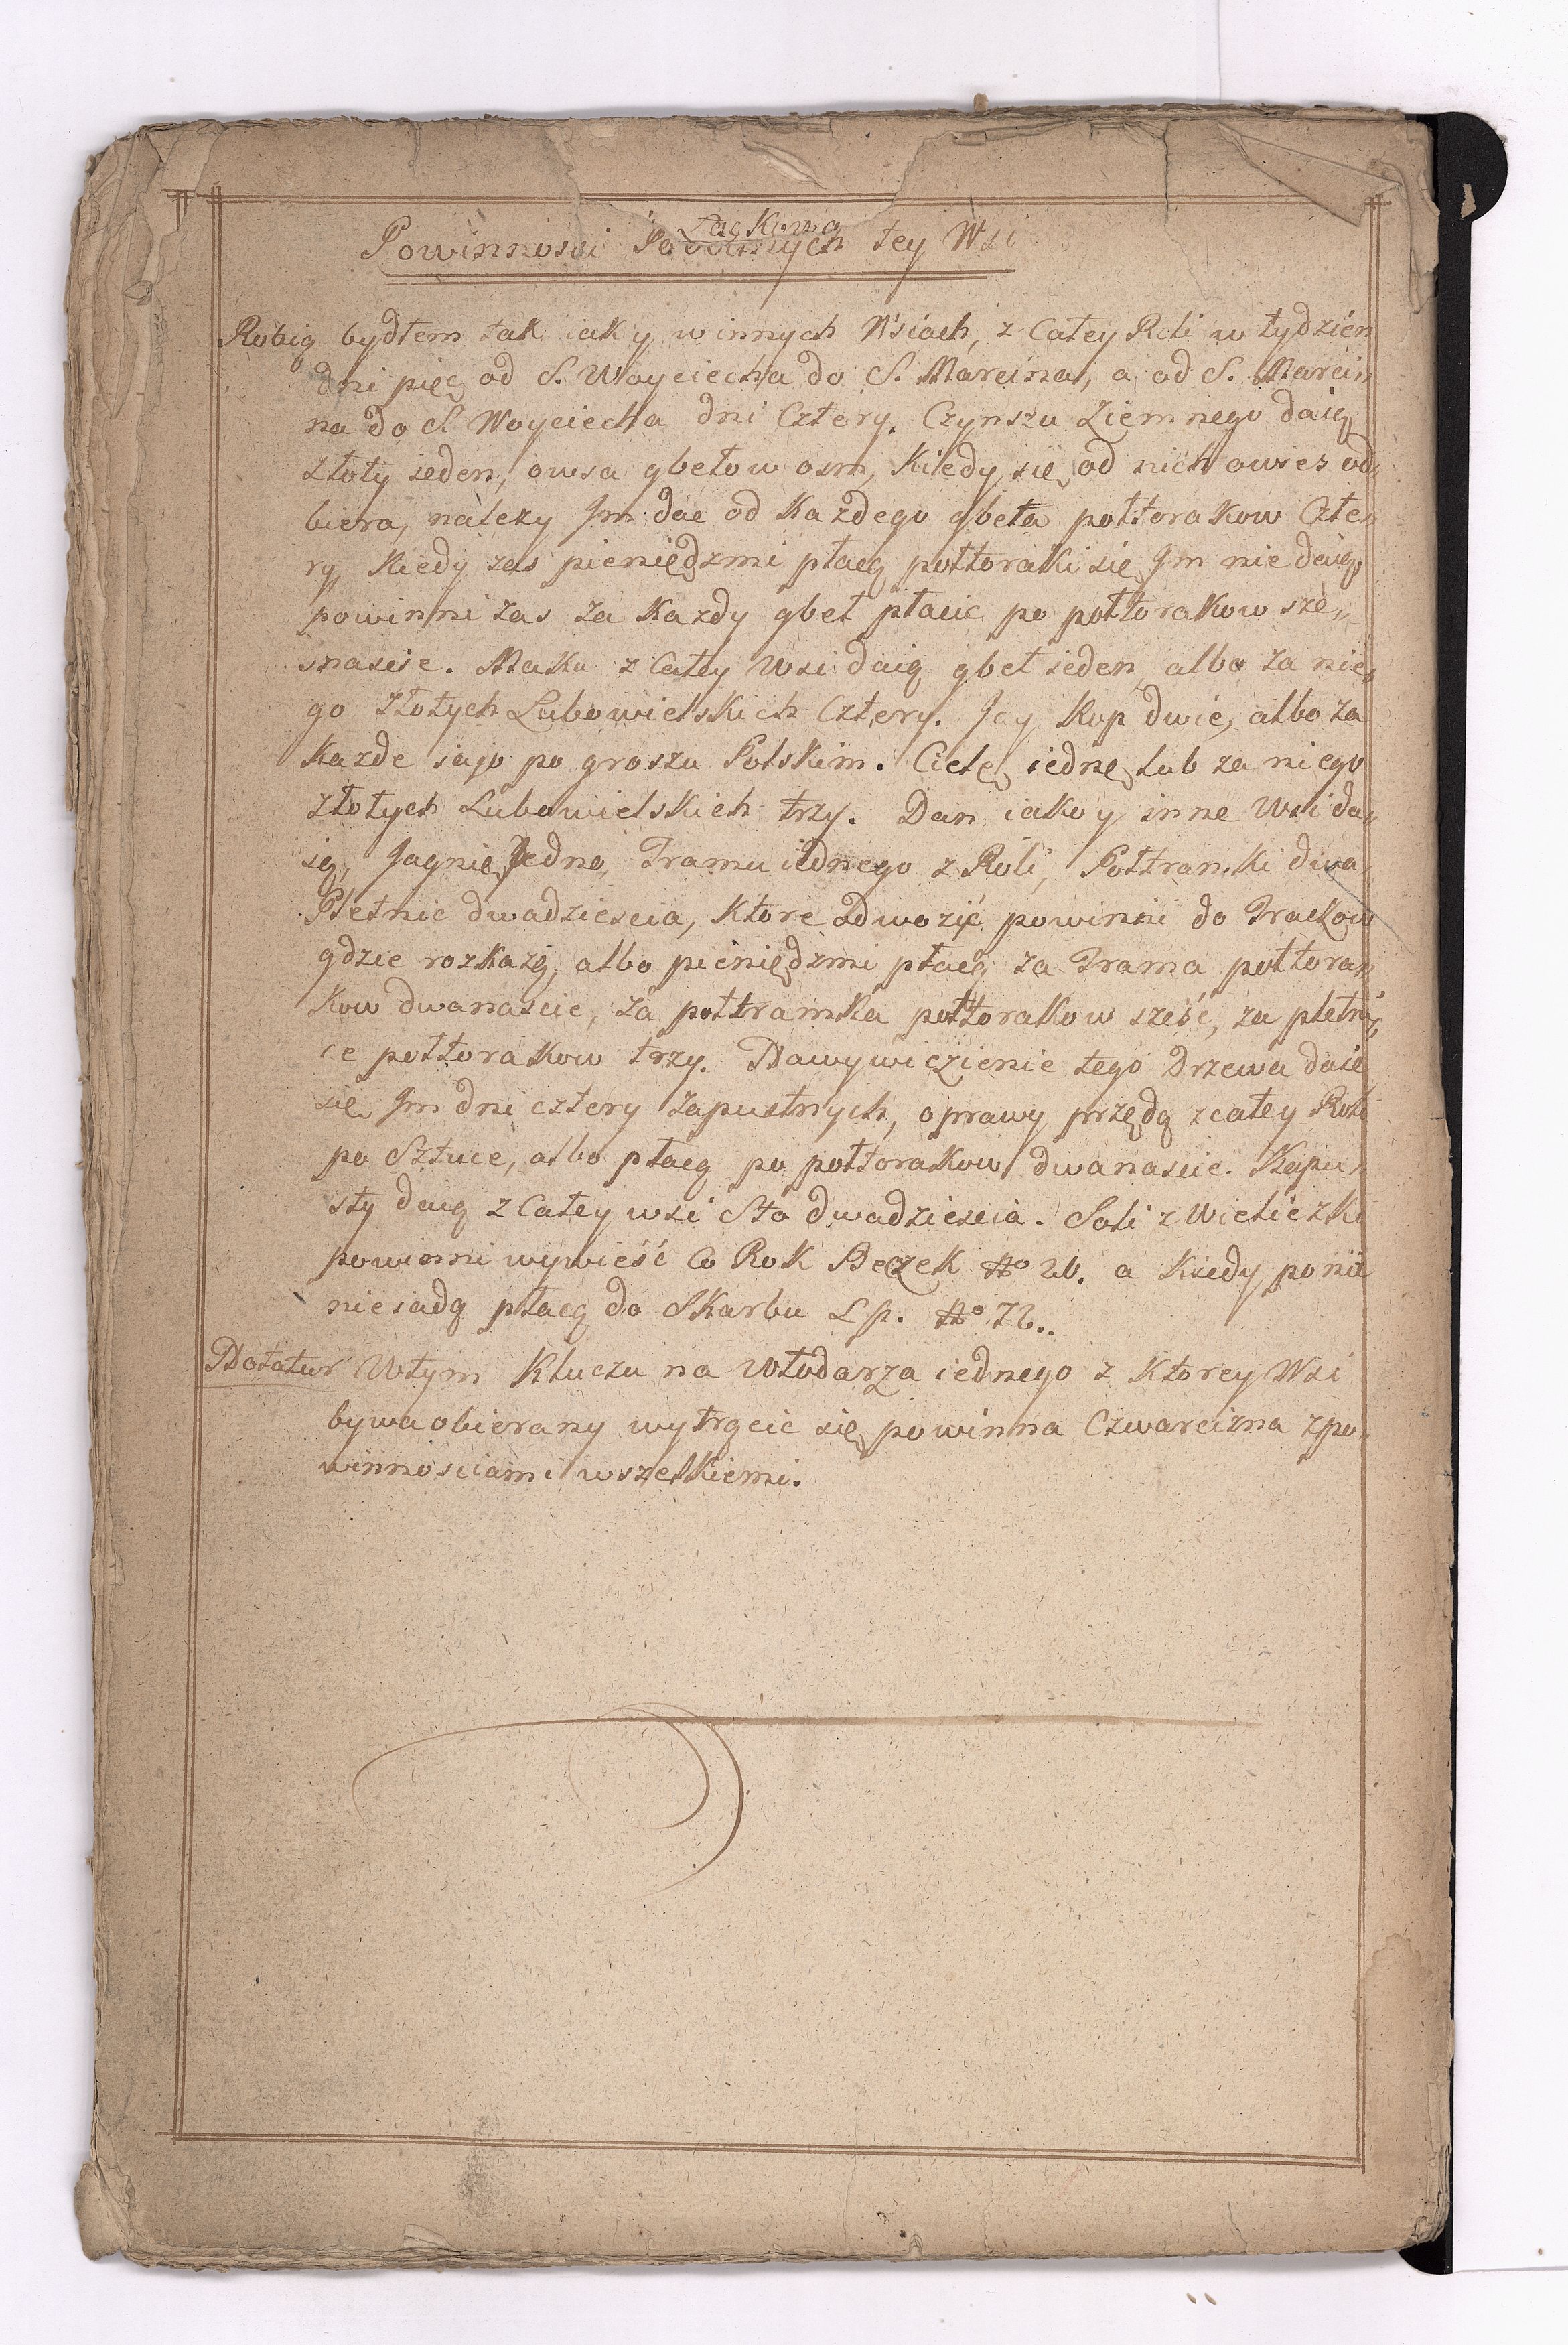 Zaskiwa
Powinnosci Poddanych tey Wsi
Robią bydłem tak iak y w innych Wsiach, z Całey Roli w tydzień
dni pięć od S. Woyciecha do S. Marcina, a od S. Marci„
na do S Woyciecha dni Cztery. Czynszu Ziemnego daią
złoty ieden, owsa gbełow osm, Kiedy się od nich owies od„
biera, należy Jm dać od Każdego gbeła połtorakow Czte„
ry, Kiedy zas pieniędzmi płacą połtoraki się Jm nie daią,
powinni zas za Każdy gbeł płacic po połtorakow sze„
snascie. Maku z Całey Wsi daią gbeł ieden, albo za nie„
go Złotych Lubowielskich Cztery. Jay Kop dwie, albo za
Każde iajo po groszu Polskim. Cielę iednę lub za niego
złotych Lubowielskich trzy. Dan iako y inne Wsi da„
ią, Jagnię Jedno, Tramu iednego z Roli, Połtramki dwa,
Płetnic dwadziescia, Ktore odwozić powinni do Traczow
gdzie rozkażą, albo pieniędzmi płacą za Trama połtora„
kow dwanascie, za połtramka połtorakow sześć, za płetni„
ce połtorakow trzy. Na wywiezienie tego Drzewa daie
się Jm dni cztery Zapustnych, oprawy przędą z całey Roli
po Sztuce, albo płacą po połtorakow dwanascie. Kapu„
sty daią z Całey wsi Sto dwadziescia. Soli z Wieliczki
powinni wywieść Co Rok Beczek No 26. a Kiedy po nię
nie iadą płacą do Skarbu Lp. No 72..
Notatur W tym Kluczu na włodarza iednego z Ktorey Wsi
bywa obierany wytrącic się powinna Czwarcizna z po„
winnosciami wszelkiemi.